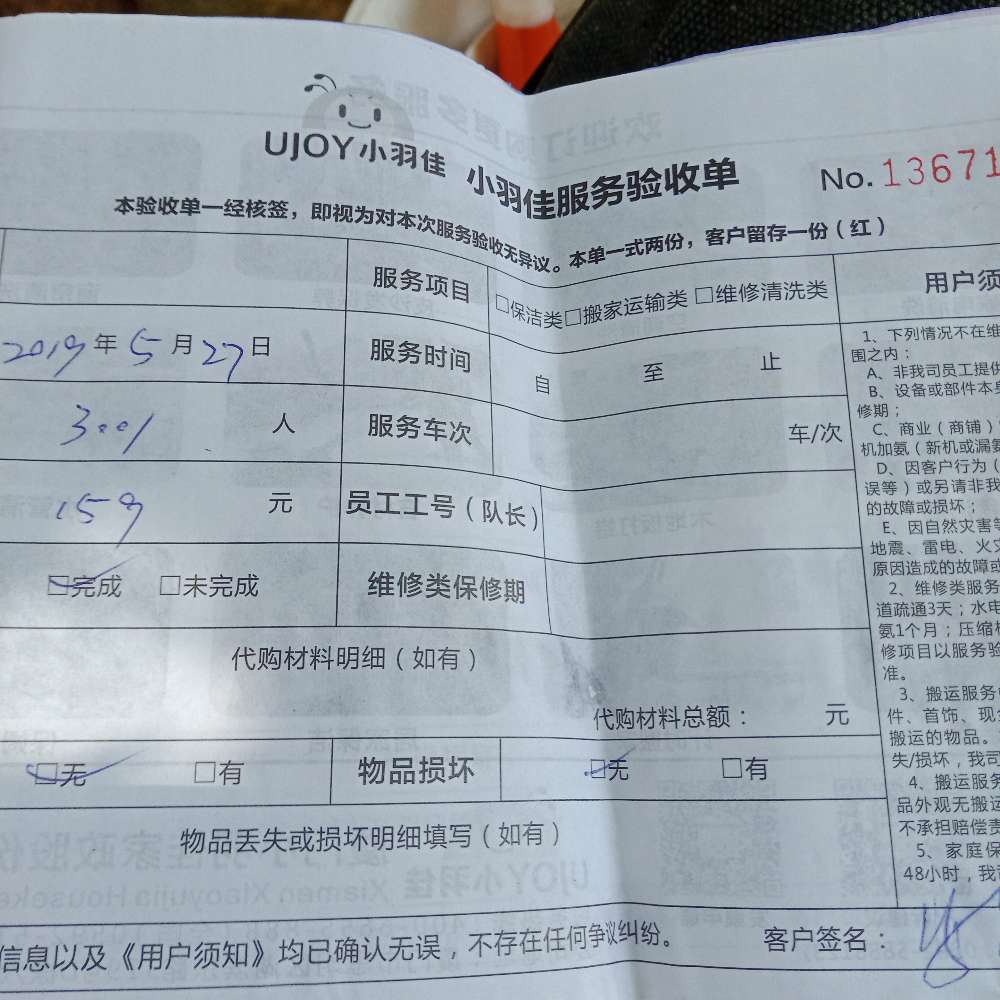 UJOY小羽佳 小羽佳服务验收单 No.13671
本验收单一经核签，即视为对本次服务验收无异议。本单一式两份，客户留存一份（红）
服务项目 □保洁类□搬家运输类□维修清洗类
2019年5月27日 服务时间 自 至 止
3001 人 服务车次 车/次
159 元 员工工号（队长）
□完成 □未完成 维修类保修期
代购材料明细（如有）
代购材料总额： 元
□无 □有 物品损坏 □无 □有
物品丢失或损坏明细填写（如有）
信息以及《用户须知》均已确认无误，不存在任何争议纠纷。 客户签名：
用户须
1、下列情况不在维
围之内：
A、非我司员工提供
B、设备或部件本身
修期；
C、商业（商铺）
机加氨（新机或漏氨
D、因客户行为（
误等）或另请非我
的故障或损坏；
E、因自然灾害等
地震、雷电、火灾
原因造成的故障或
2、维修类服务
道疏通3天；水电
氨1个月；压缩机
修项目以服务验
准。
3、搬运服务
件、首饰、现金
搬运的物品。
失/损坏，我司
4、搬运服务
品外观无搬运
不承担赔偿责
5、家庭保
48小时，我